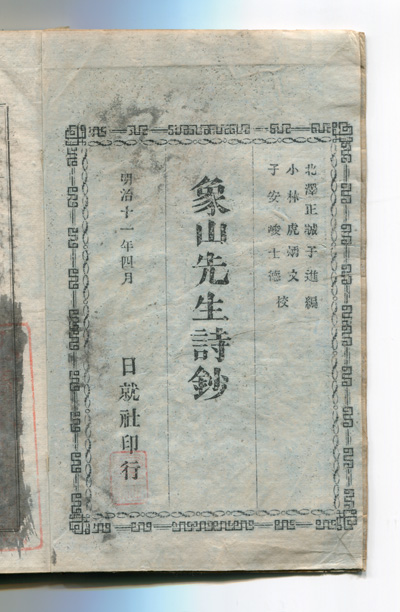 北澤正誠子進編
小林虎炳文
子安峻士德校
象山先生詩鈔
明治十一年四月
日就社印行